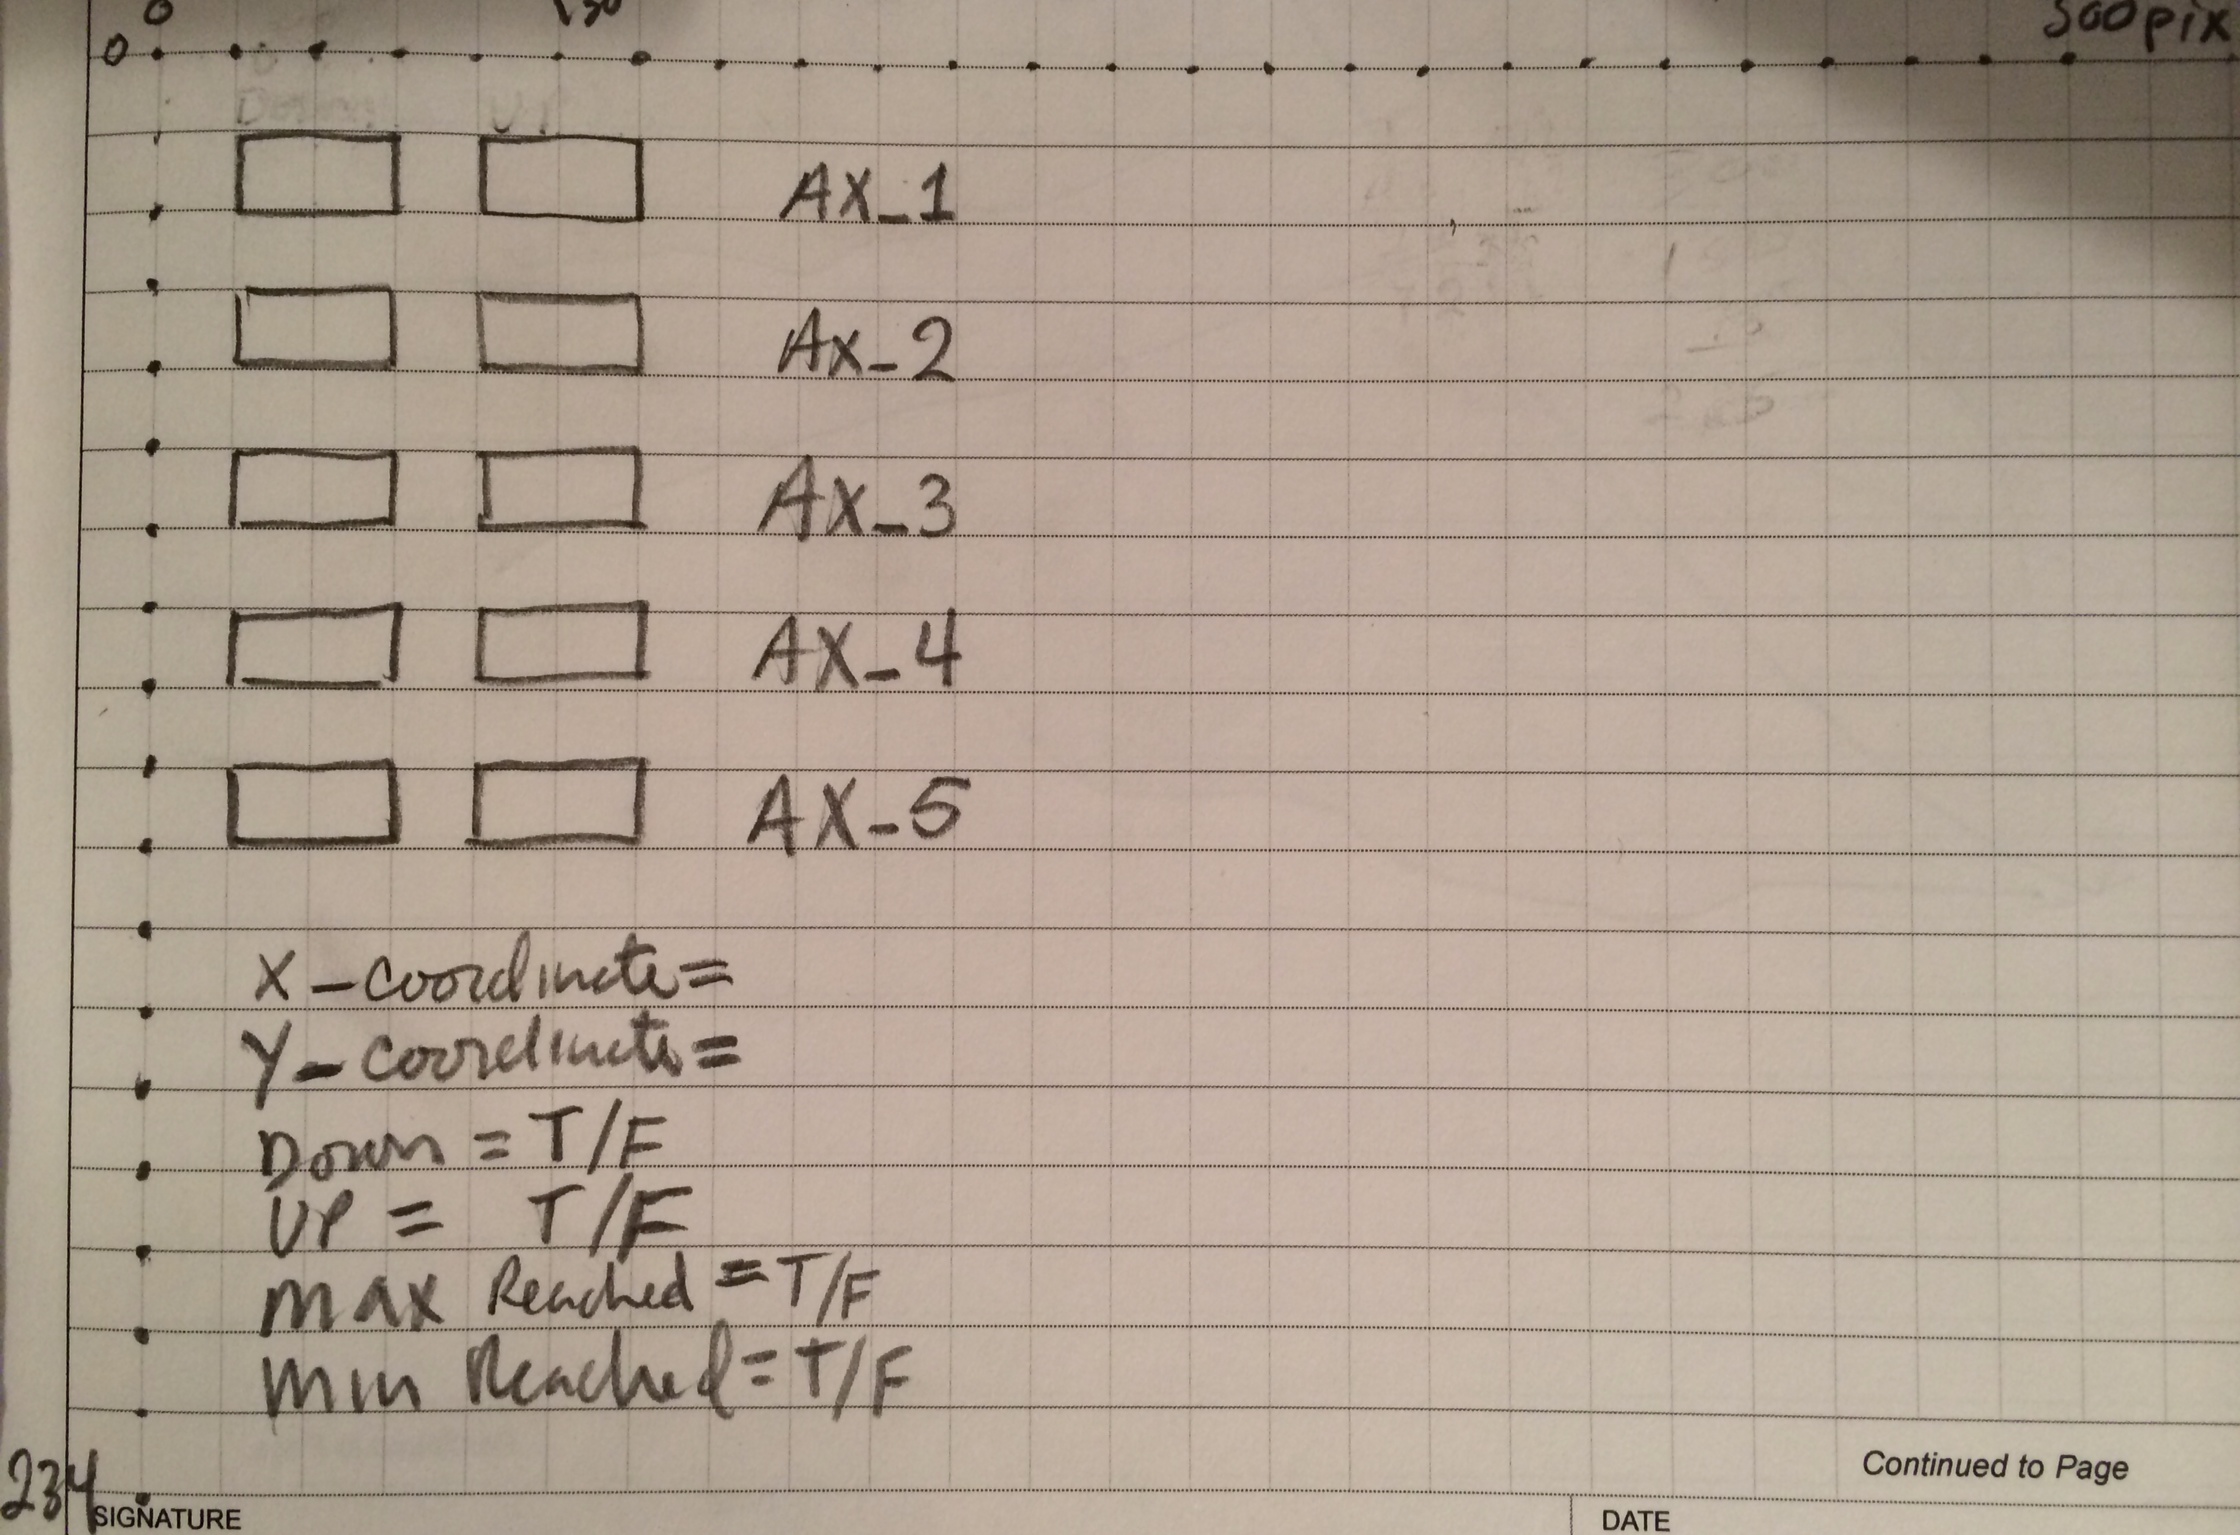 0
500pix
0
Down UP
AX_1
AX_2
AX_3
AX_4
AX_5
X-coordinate=
Y-coordinate=
Down = T/F
UP = T/F
max Reached = T/F
min Reached = T/F
Continued to Page
234
SIGNATURE DATE